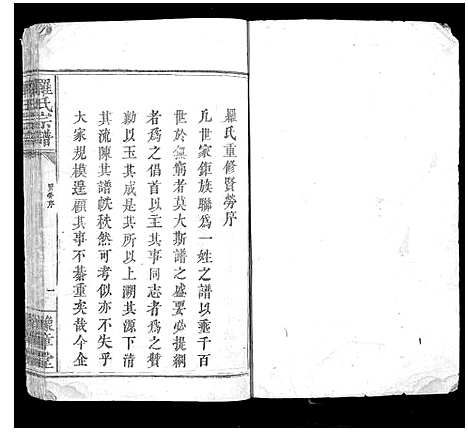 羅氏重修賢勞序
凡世家鉅族聯為一姓之譜以垂千百
世於無窮者莫大斯譜之盛要必提綱
者為之倡首以主其事同志者為之贊
勷以玉其成是其所以上溯其源下清
其流陳其譜帙秩然可考似亦不失乎
大家規模遑顧其事不綦重矣哉今企
羅氏宗譜
賢勞序
一
豫章堂